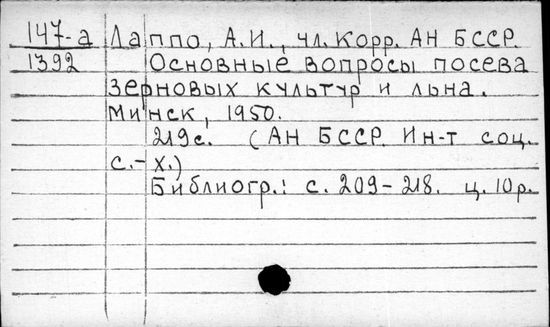 147-а Лаппо, А.И., чл. корр. АН БССР.
1392 Основные вопросы посева
зерновых культур и льна.
Минск, 1950.
219с. (АН БССР. Ин-т соц.
с.-х.)
Библиогр.: с. 209-218. ц. 10р.